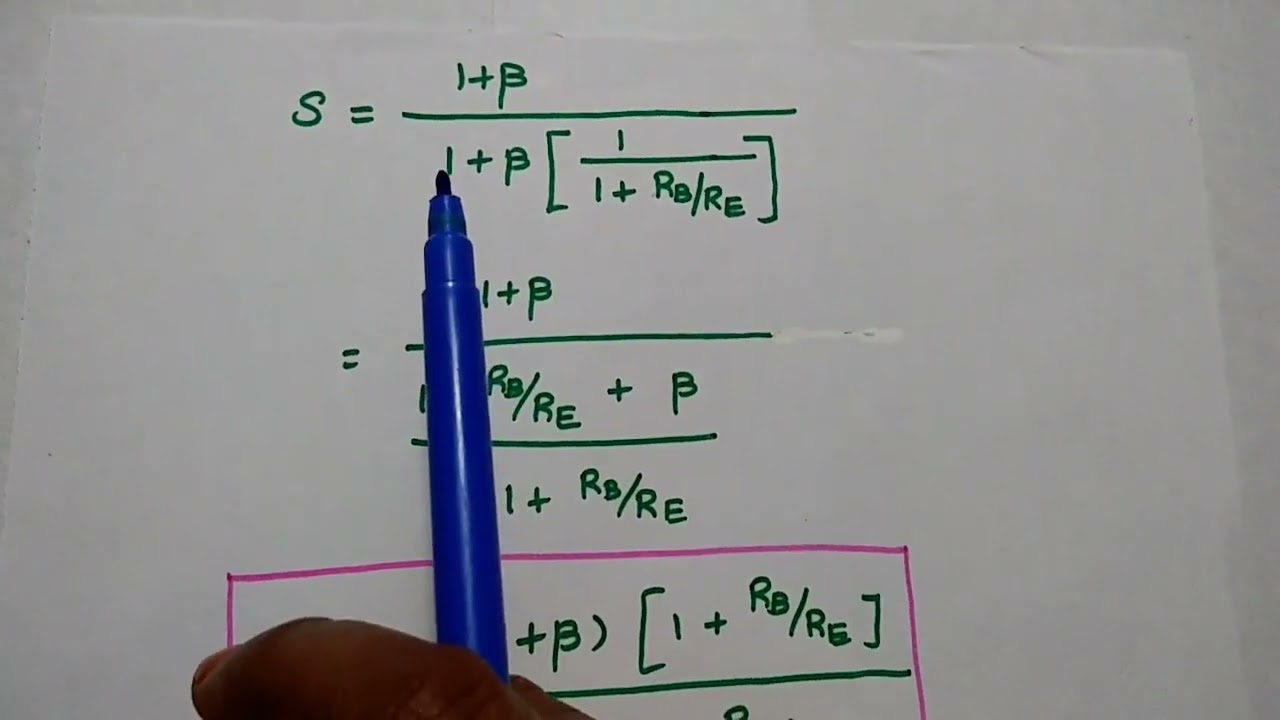 S = 1+β
1 + β [ 1
1 + RB/RE ]
= 1+β
1 RB/RE + β
1 + RB/RE
+β) [ 1 + RB/RE ]